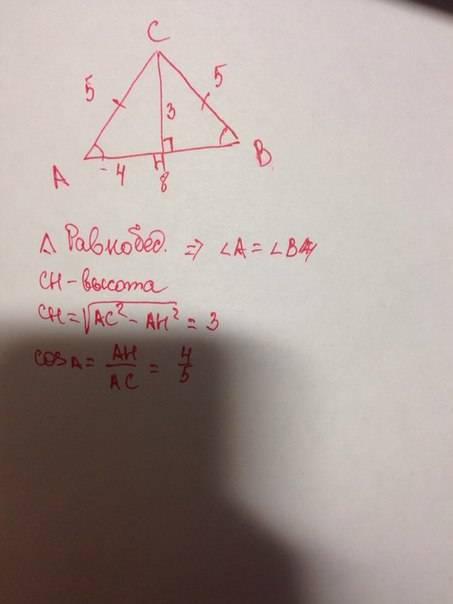 C
5
5
3
A
4
H
8
B
Δ Равнобед. => ∠A = ∠B
CH - высота
CH = √AC² - AH² = 3
cos A = AH/AC = 4/5